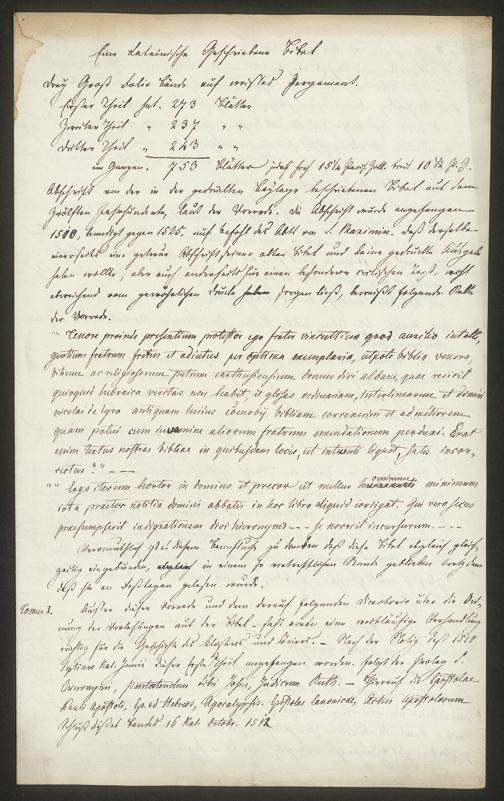 Eine Lateinische Geschriebene Bibel
drey Groß Folio Bände auf weißes Pergament.
Erster Theil hat. 273 Blätter
Zweiter Theil " 237 " "
Dritter Theil " 243 " "
im Ganzen. 753 Blätter jedes hoch 15 1/2 Paris. Zoll. breit 10 1/2 P. Z.
Abschrift von der in der gedruckten Beylage beschriebenen Bibel aus dem
zwölften Jahrhunderte, laut der Vorrede. Die Abschrift wurde angefangen
1510, beendigt gegen 1525, auf Befehl des Abts von S. Maximin. Daß derselbe
einerseits eine getreue Abschrift seiner alten Bibel und keine gedruckte Ausgabe
haben wollte, aber auch anderseits für einen besonderen critischen Text, nicht
abweichend vom gewöhnlichen Drucke sorgen ließ, beweißt folgende Stelle
der Vorrede.
" Tenore proinde presentium protestor ego frater vincentius quod auxilio
quorum fratrum fretus et adiutus per optima exemplaria, utpote biblia
ac religiosorum patrum carthusiensium domus divi albani, quae
quicquid hebraica veritas non habet, et glosas ordinariam, interlinearem et domini
nicolai de lyra antiquam huius coenobij bibliam correxerim et ad meliorem
quam potui cum iuvamine aliorum fratrum emendationem perduxi. Erat
enim textus nostrae bibliae in quibusdam locis, ut intuenti liquet, satis incor-
rectus." " ---
" " Ergo iterum hortor in domino et precor ut nullus hominum minimum
iota praeter notitia domini abbatis in hoc libro aliquid corrigat. Qui vero secus
praesumpserit indignationem divi hieronymi --- se noverit incursurum. ---
Vermuthlich ist es diesem zu danken daß diese Bibel obgleich gleich-
zeitig eingebunden, in einem so vortrefflichen Stande geblieben trotzdem
daß sie an Festtagen gelesen wurde.
Tomus I. Außer dieser Vorrede und dem darauf folgenden Directorio über die Ord-
nung der Vorlesungen aus der Bibel - steht vorn eine weitläufige Abhandlung
für die Geschichte des Klosters und Triers. - Nach der Notiz daß 1510
Septimo Kal. Junii dieser Erste Theil angefangen worden. folgt der Prolog S.
Hieronymi, pentateuchus libri Josue, Judicum Ruth. - Hierauf die Epistolae
beati Apostoli, Ep. ad Hebreos, Apocalypsis. Epistolae Canonicae, Actus Apostolorum
Schluß dieses Bandes 16 Kal. Octobr. 1512